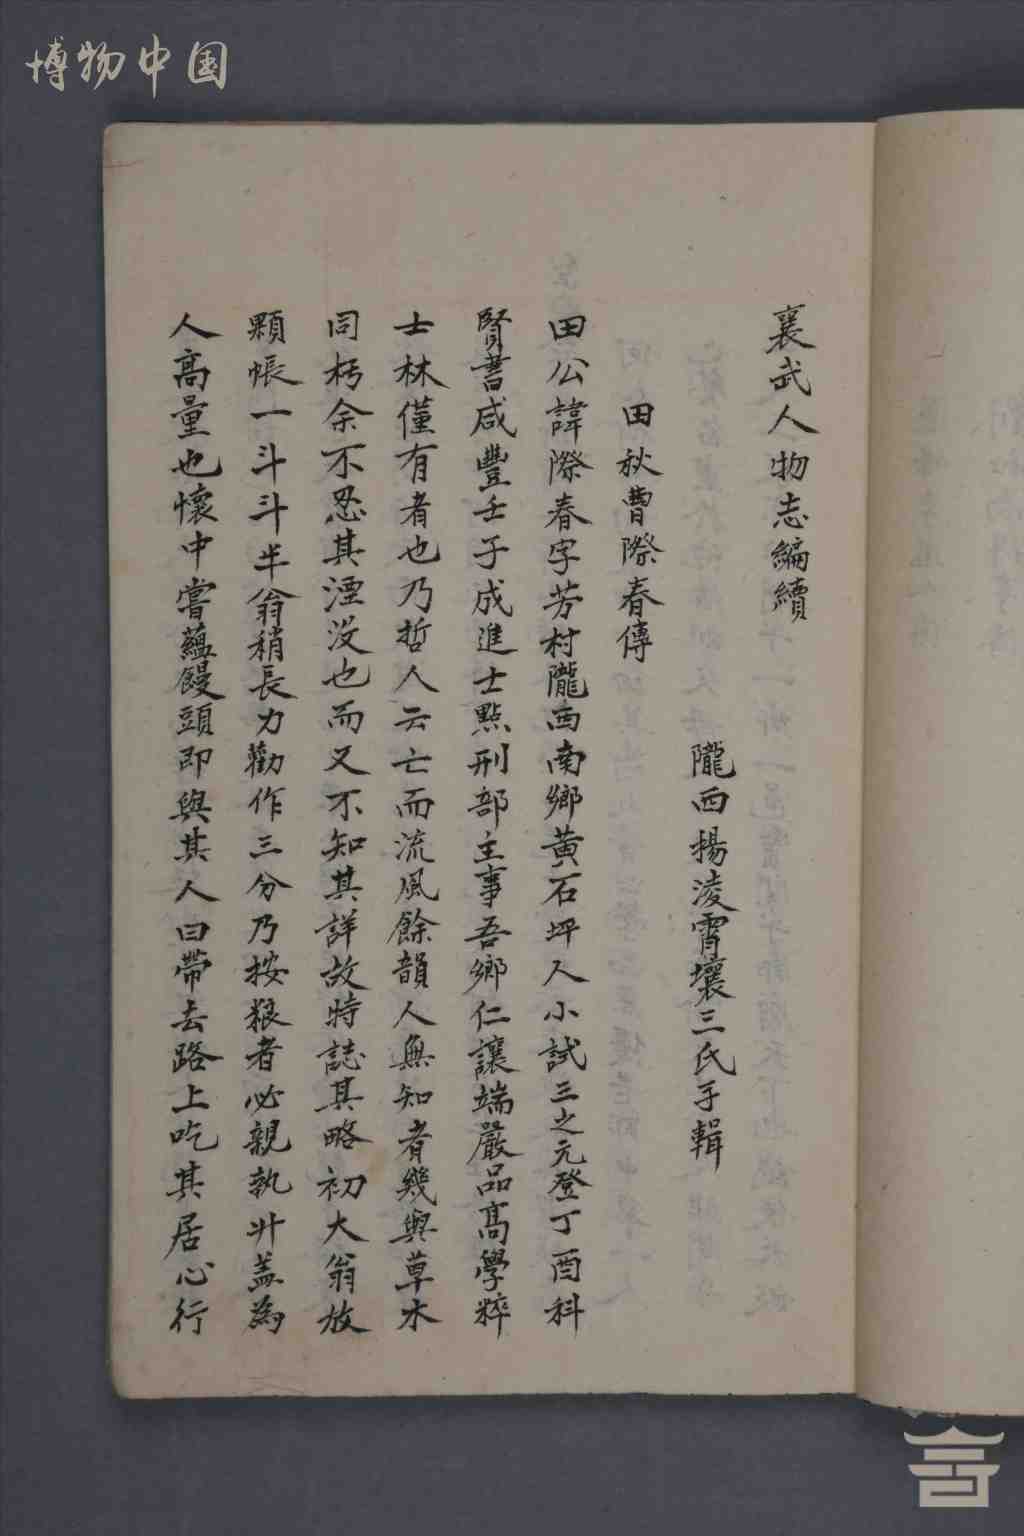 博物中国
襄武人物志編續
隴西楊凌霄壤三氏手輯
田秋曹際春傳
田公諱際春字芳村隴西南鄉黃石坪人小試三之元登丁酉科
賢書咸豐壬子成進士點刑部主事吾鄉仁讓端嚴品高學粹
士林僅有者也乃哲人云亡而流風餘韻人無知者幾與草木
同朽余不忍其湮沒也而又不知其詳故時誌其略初大翁放
顆帳一斗斗半翁稍長力勸作三分乃按粮者必親執升盖為
人高量也懷中嘗蘊饅頭即與其人曰帶去路上吃其居心行